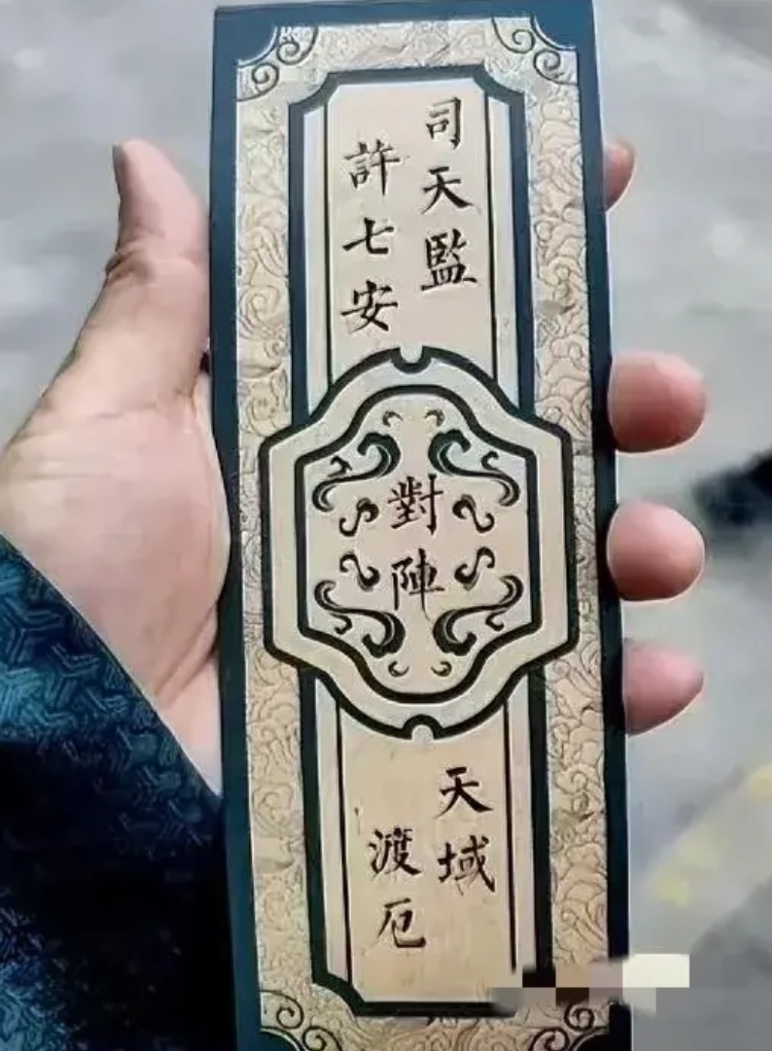 司天監
許七安
對陣
天域
渡厄